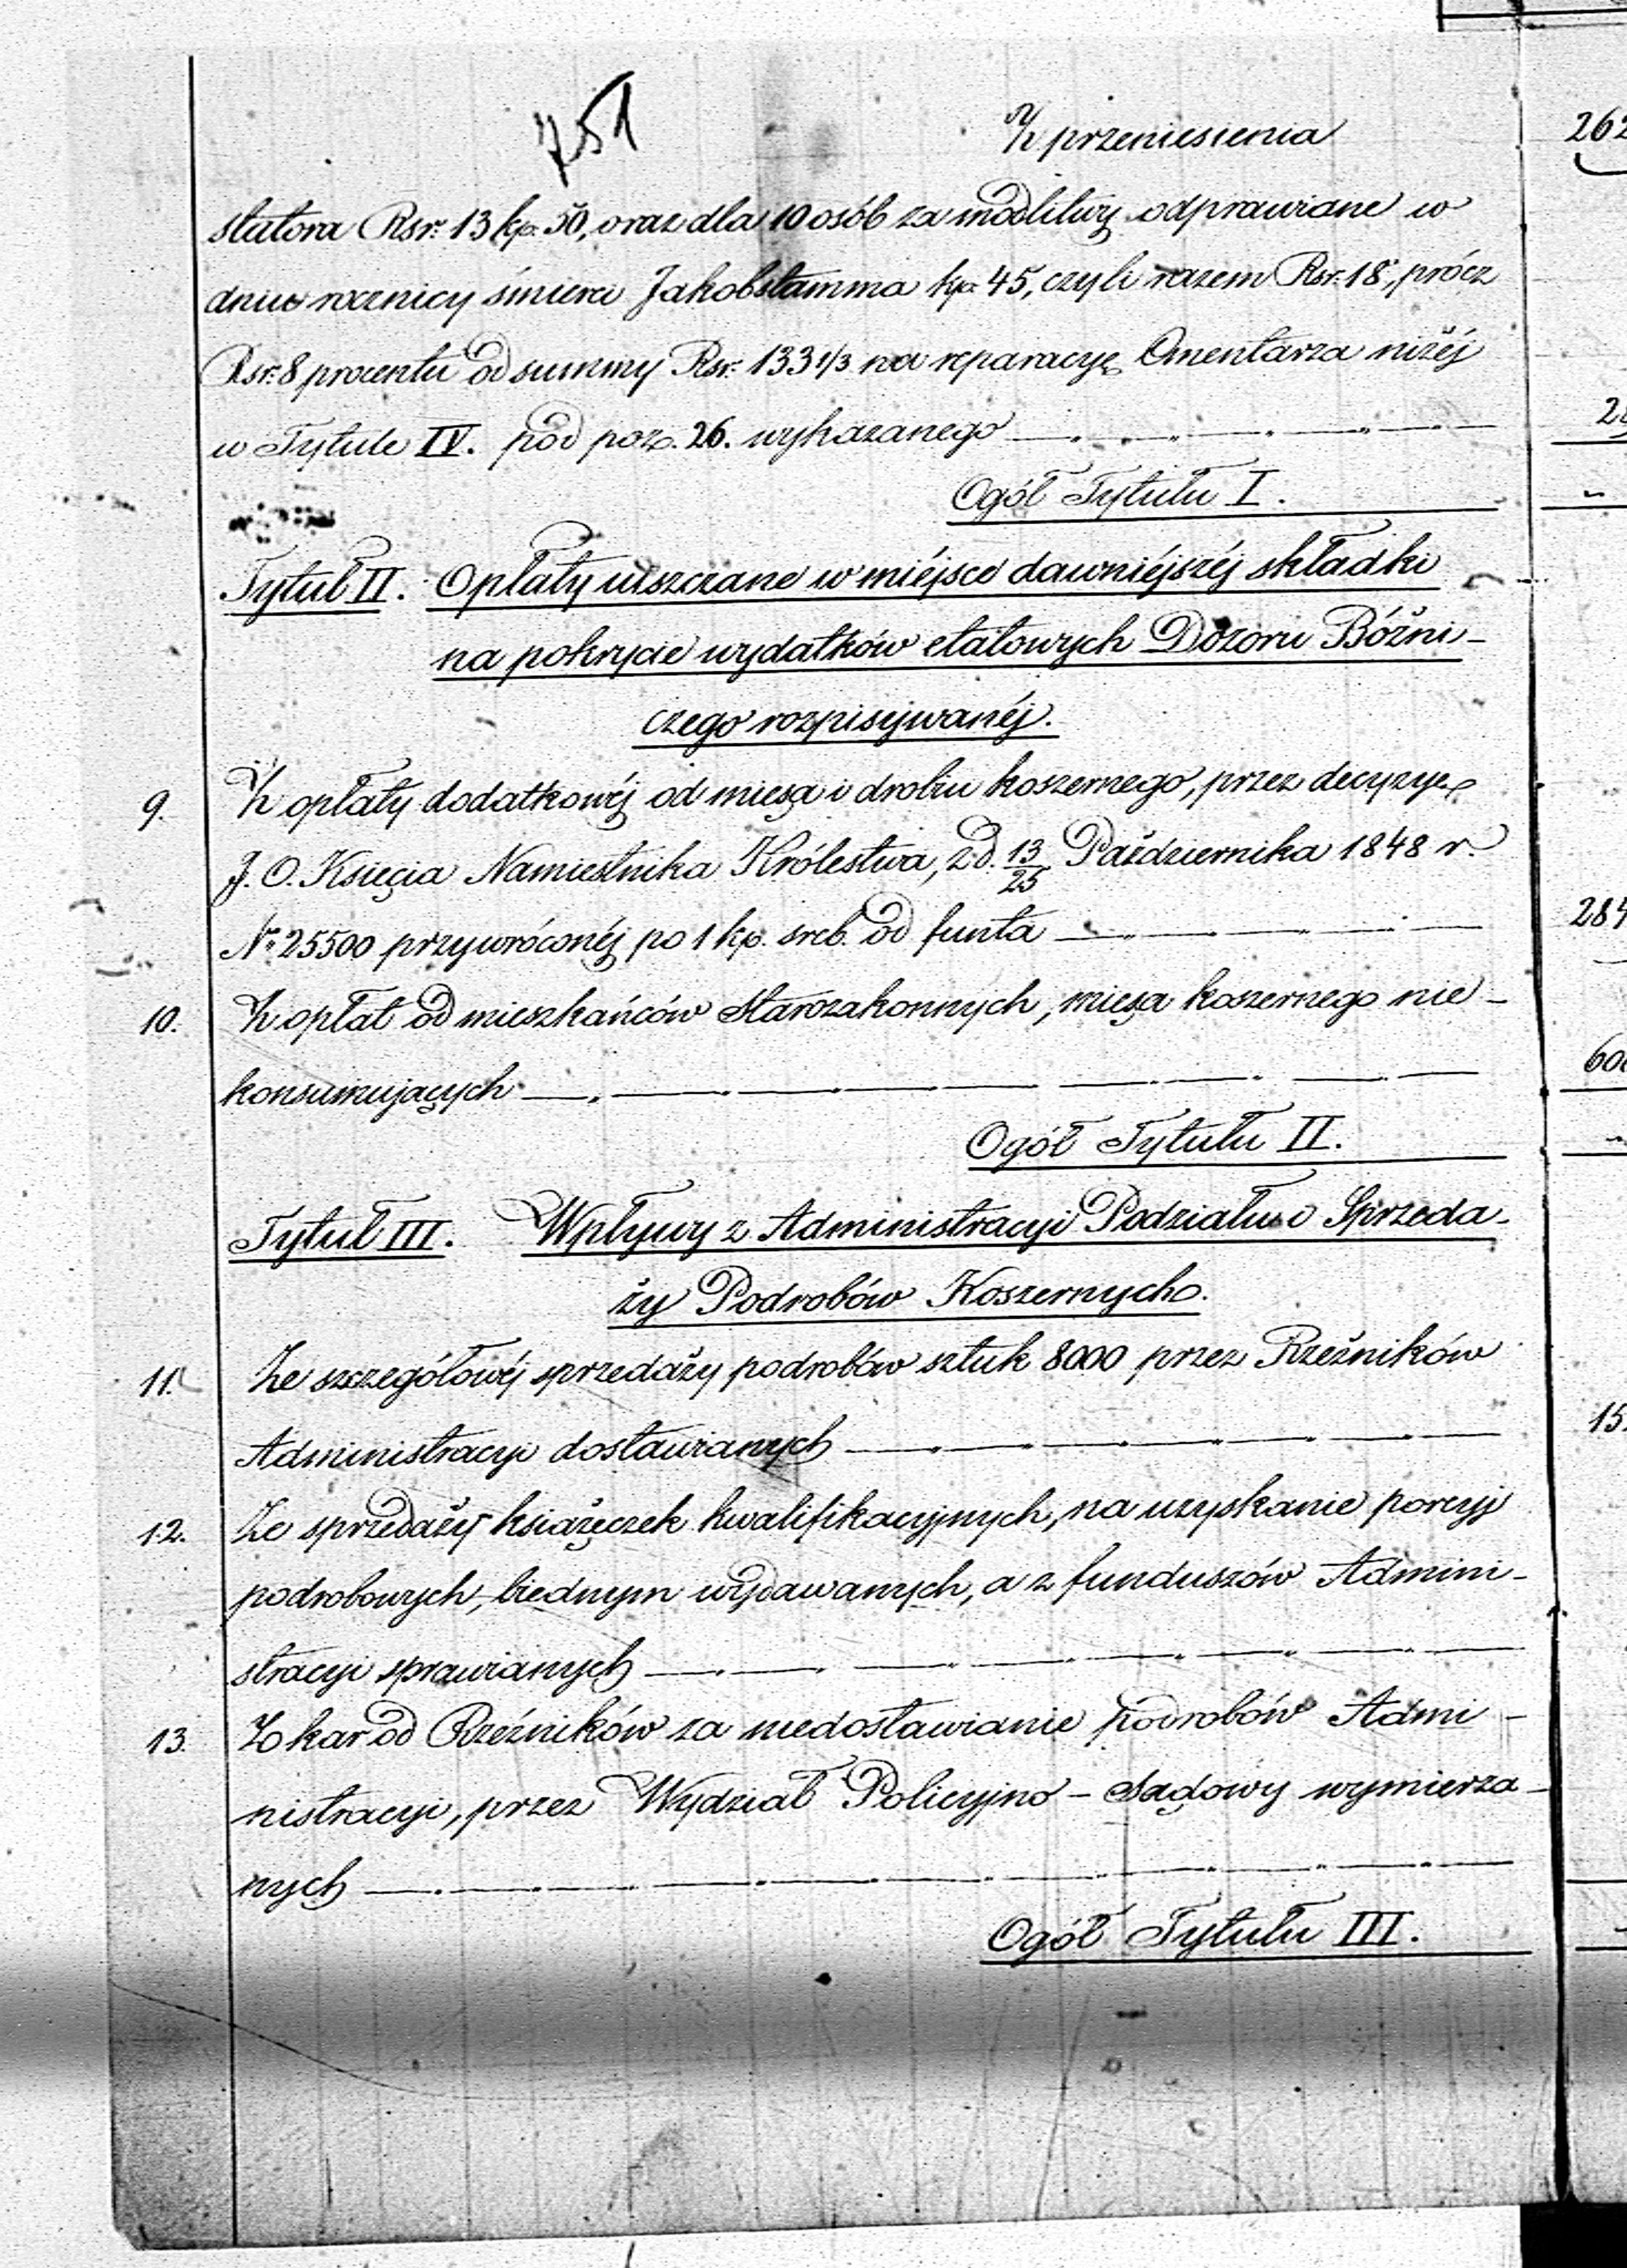 751
Z przeniesienia
262
statora Rsr. 13 kp. 50, oraz dla 10 osób za modlitwy odprawiane w
dniu rocznicy śmierci Jakobstamma kp. 45, czyli razem Rsr. 18, prócz
Rsr. 8 procentu od summy Rsr. 133 1/3 na reparacyę Cmentarza niżéj
w Tytule IV. pod poz. 26. wykazanego
Ogół Tytułu I.
Tytuł II. Opłaty uiszczane w miéjsce dawniéjszéj składki
na pokrycie wydatków etatowych Dozoru Bóżni-
czego rozpisywanéj.
9. Z opłaty dodatkowéj od mięsa i drobiu koszernego, przez decyzyę
J. O. Księcia Namiestnika Królestwa, z d. 13/25 Października 1848 r.
Nr. 25500 przywróconéj po 1 kp. sreb. od funta
284
10. Z opłat od mieszkańców Starozakonnych, mięsa koszernego nie-
konsumujących
60
Ogół Tytułu II.
Tytuł III. Wpływy z Administracyi Podziału i Sprzeda-
ży Podrobów Koszernych.
11. Ze szczegółowéj sprzedaży podrobów sztuk 8000 przez Rzeźników
Administracyi dostawianych
15
12. Ze sprzedaży książeczek kwalifikacyjnych, na uzyskanie porcyj
podrobowych, biednym wydawanych, a z funduszów Admini-
stracyi sprawianych
13. Z kar od Rzeźników za niedostawianie podrobów Admi-
nistracyi, przez Wydział Policyjno-Sądowy wymierza-
nych
Ogół Tytułu III.